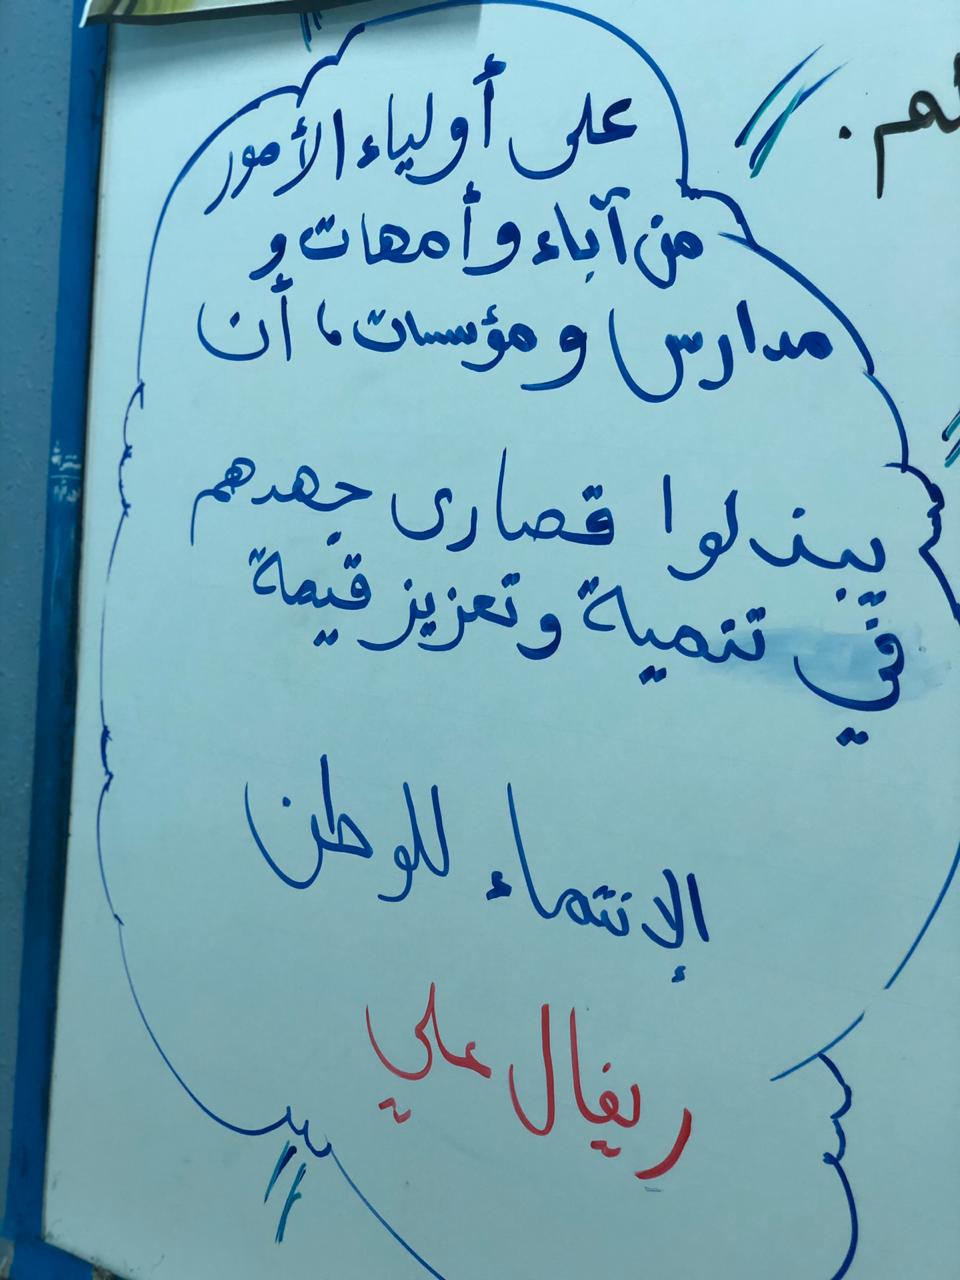 على أولياء الأمور
من آباء وأمهات و
مدارس ومؤسسات، أن
يبذلوا قصارى جهدهم
في تنمية وتعزيز قيمة
الإنتماء للوطن
ريفال علي